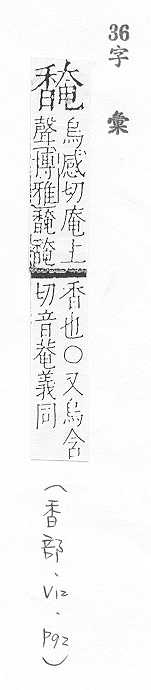 36字彙
馣
烏感切庵上
聲博雅馣馣
香也〇又烏含
切音菴義同
(香部、V12、P92)